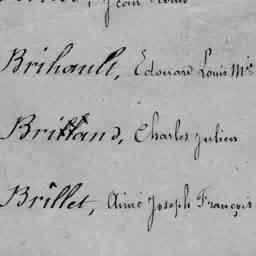 Jean Louis
Brihault, Edouard Louis Mie
Brilland, Charles Julien
Brillet, Aimé Joseph François